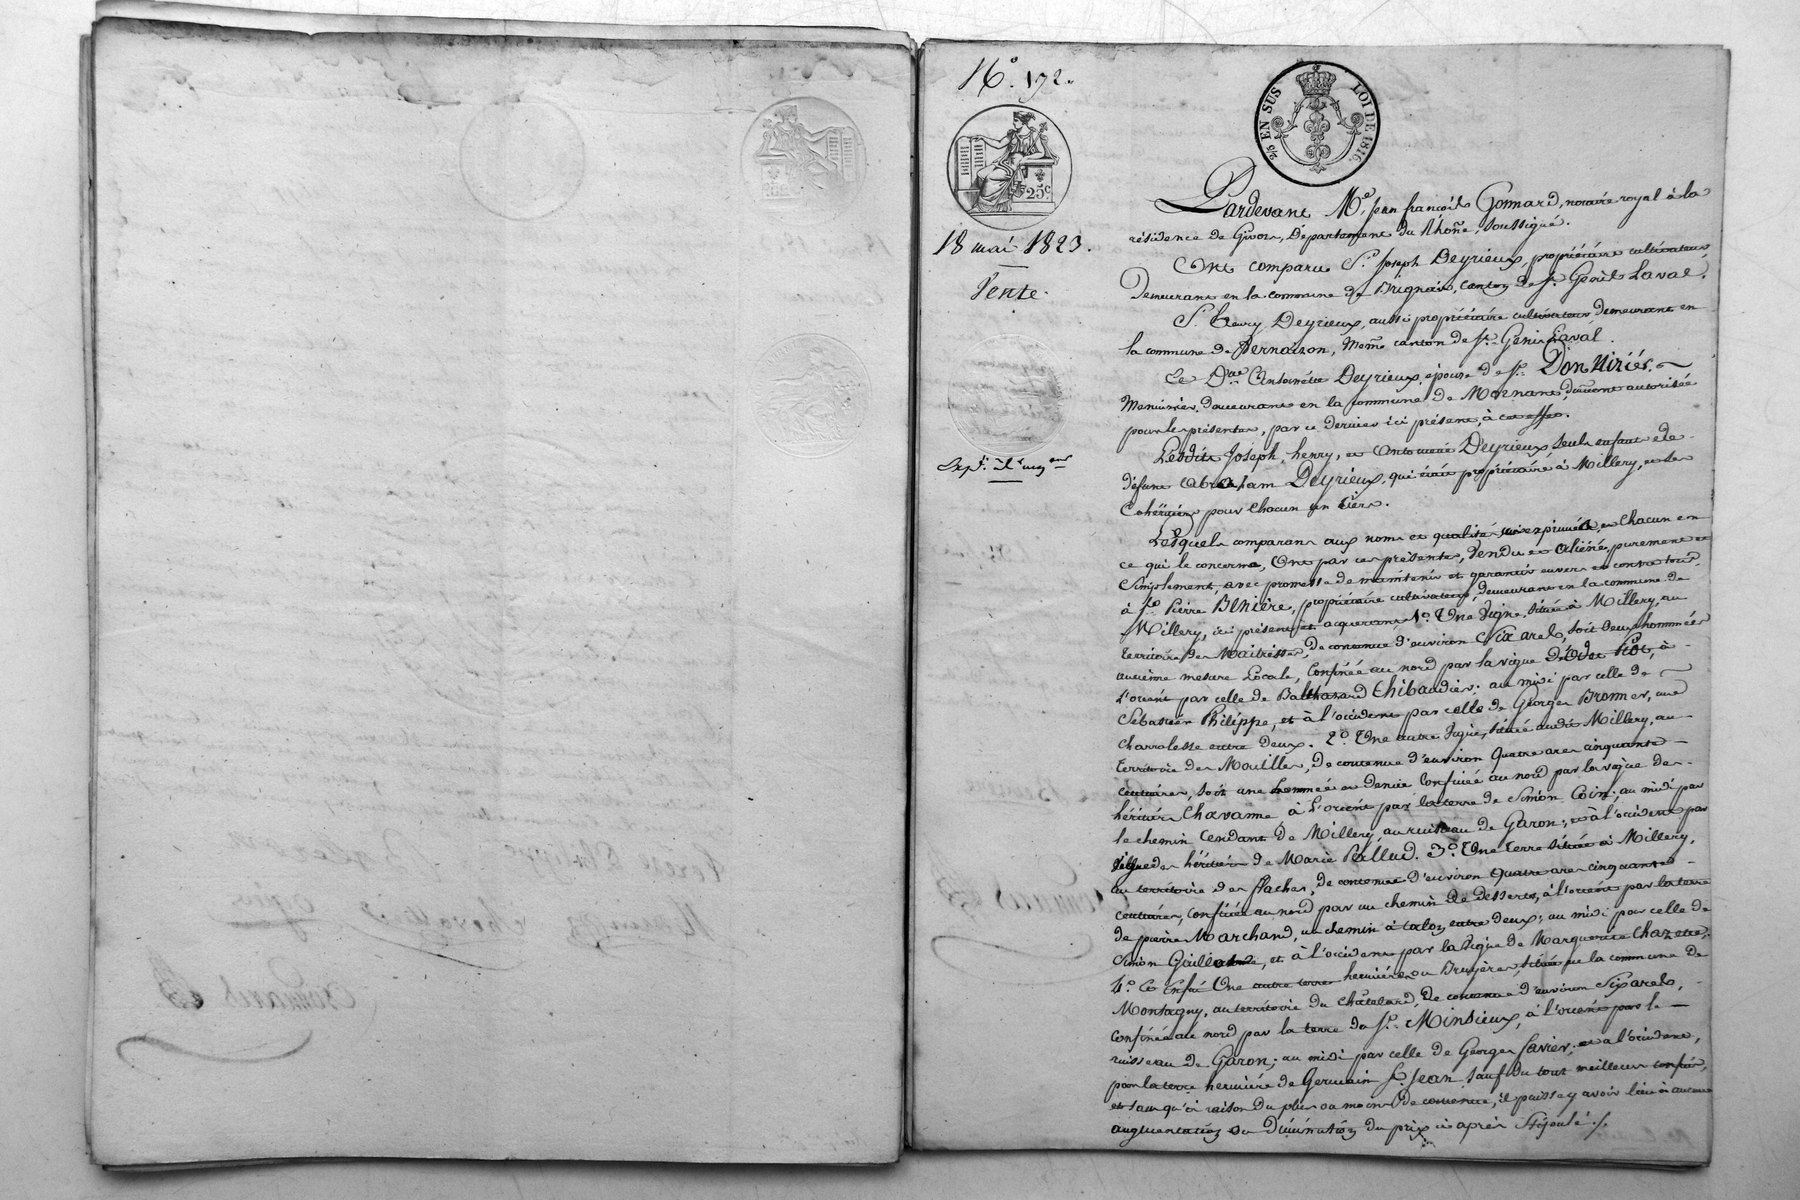 N.° 172.
2/5 EN SUS LOI DE 1816.
25 c.
18 mai 1823.
Vente.
Pardevant M.e jean françois Gonnard, notaire royal à la
résidence de Givors, Département du Rhône, soussigné.
Ont comparu S.r Joseph Deyrieux, propriétaire cultivateur,
Demeurant en la commune de Brignais, canton de S.t Genis Laval.
S.r henry Deyrieux, aussi propriétaire cultivateur demeurant en
la commune de Vernaison, même canton de S.t Genis Laval.
Et D.me Antoinette Deyrieux, épouse de S.r
Menuisier, demeurant en la commune de Mornant, dument autorisée
pour les présentes, par ce dernier ici présent, à cet effet.
Lesdits Joseph, henry, et Antoinette Deyrieux, seuls enfants de
défunt Abraham Deyrieux, qui était propriétaire à Millery, et ses
Cohéritiers pour Chacun un tiers.
Lesquels comparans aux noms et qualités susexprimés, et Chacun en
ce qui le concerne, Ont par ces présentes, Vendu et aliéné, purement et
Simplement, avec promesse de maintenir et garantir envers et contre tous,
à S.r Pierre Benière, propriétaire cultivateur, demeurant en la commune de
Millery, ici présent et acquerant, 1.° Une Vigne, située à Millery, au
territoire des Maitresses, de contenue d'environ Six ares, soit deux hommées
ancienne mesure Locale, Confinée au nord par la vigne à
l'orient par celle de Balthazard Thibaudier; au midi par celle de
Sébastien Philippe, et à l'occident par celle de Georges Bronner, une
Charrolesse entre deux. 2.° Une autre Vigne, située audit Millery, au
territoire des Mouilles, de contenue d'environ Quatre ares cinquante
centiares, soit une hommée et demie Confinée au nord par la vigne des
héritiers Chavanne à l'orient par la terre de Simon Coin; au midi par
le chemin tendant de Millery, au ruisseau de Garon; et à l'occident par
Vigne des héritiers de Marie Pallud. 3.° Une Terre située à Millery,
au territoire des flaches, de contenue d'environ Quatre ares cinquante
centiares, Confinée au nord par un chemin de desserte, à l'orient par la terre
de pierre Marchand, un chemin à talon entre deux; au midi par celle de
Simon et à l'occident par la Vigne de Marguerite Chazette;
4.° Et Enfin Une autre terre hermière ou Bruyère, située en la commune de
Montagny, au territoire du Chatelard, de contenue d'environ Six ares,
Confinée au nord par la terre du S.r Minsieux, à l'orient par le
ruisseau de Garon; au midi par celle de Georges Favier; et à l'occident,
par la terre hermière de Germain S.t Jean sauf du tout meilleurs confins,
et sans qu'à raison du plus ou moins de contenue, il puisse y avoir lieu à aucune
augmentation ou diminution du prix ci après Stipulé./.